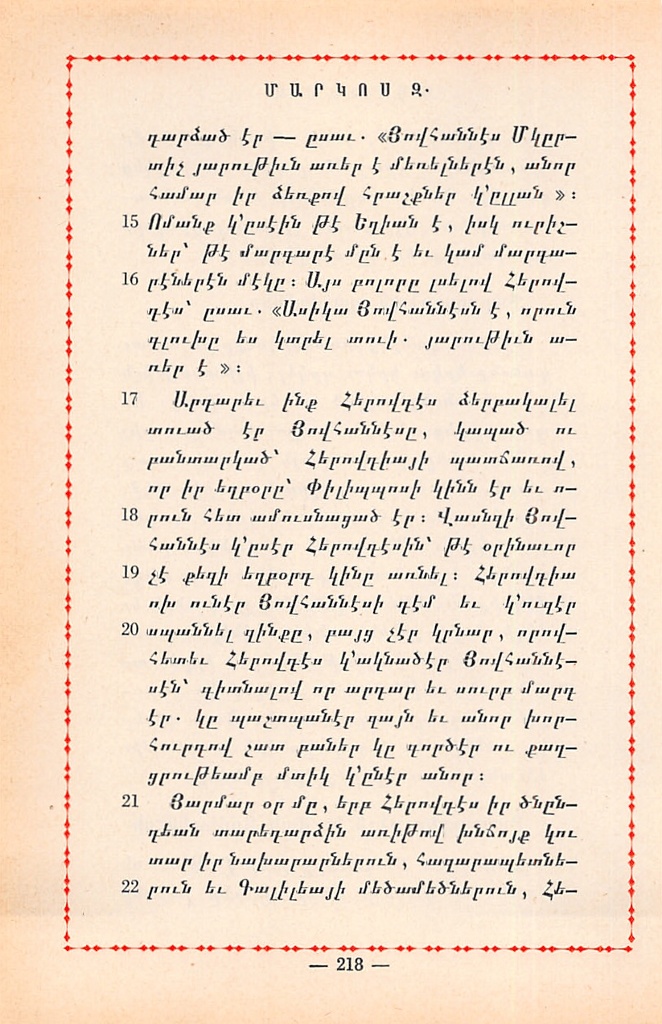 ՄԱՐԿՈՍ Զ.
դարձած էր — ըսաւ. «Յովհաննէս Մկըր–
տիչ յարութիւն առեր է մեռելներէն, անոր
համար իր ձեռքով հրաշքներ կ'ըլլան »։
15 Ոմանք կ'ըսէին թէ Եղիան է, իսկ ուրիչ–
ներ՝ թէ մարգարէ մըն է եւ կամ մարգա–
16 րէներէն մէկը։ Այս բոլորը լսելով Հերով–
դէս՝ ըսաւ. «Ասիկա Յովհաննէսն է, որուն
գլուխը ես կտրել տուի. յարութիւն ա–
ռեր է »։
17 Արդարեւ ինք Հերովդէս ձերբակալել
տուած էր Յովհաննէսը, կապած ու
բանտարկած՝ Հերովդիայի պատճառով,
որ իր եղբօրը՝ Փիլիպպոսի կինն էր եւ ո–
18 րուն հետ ամուսնացած էր։ Վասնզի Յով–
հաննէս կ'ըսէր Հերովդէսին՝ թէ օրինաւոր
19 չէ քեզի եղբօրդ կինը առնել։ Հերովդիա
ոխ ունէր Յովհաննէսի դէմ եւ կ'ուզէր
20 սպաննել զինքը, բայց չէր կրնար, որով–
հետեւ Հերովդէս կ'ակնածէր Յովհաննէ–
սէն՝ գիտնալով որ արդար եւ սուրբ մարդ
էր. կը պաշտպանէր զայն եւ անոր խոր–
հուրդով շատ բաներ կը գործէր ու քաղ–
ցրութեամբ մտիկ կ'ընէր անոր։
21 Յարմար օր մը, երբ Հերովդէս իր ծնըն–
դեան տարեդարձին առիթով խնճոյք կու
տար իր նախարարներուն, հազարապետնե–
22 րուն եւ Գալիլեայի մեծամեծներուն, Հե–
— 218 —